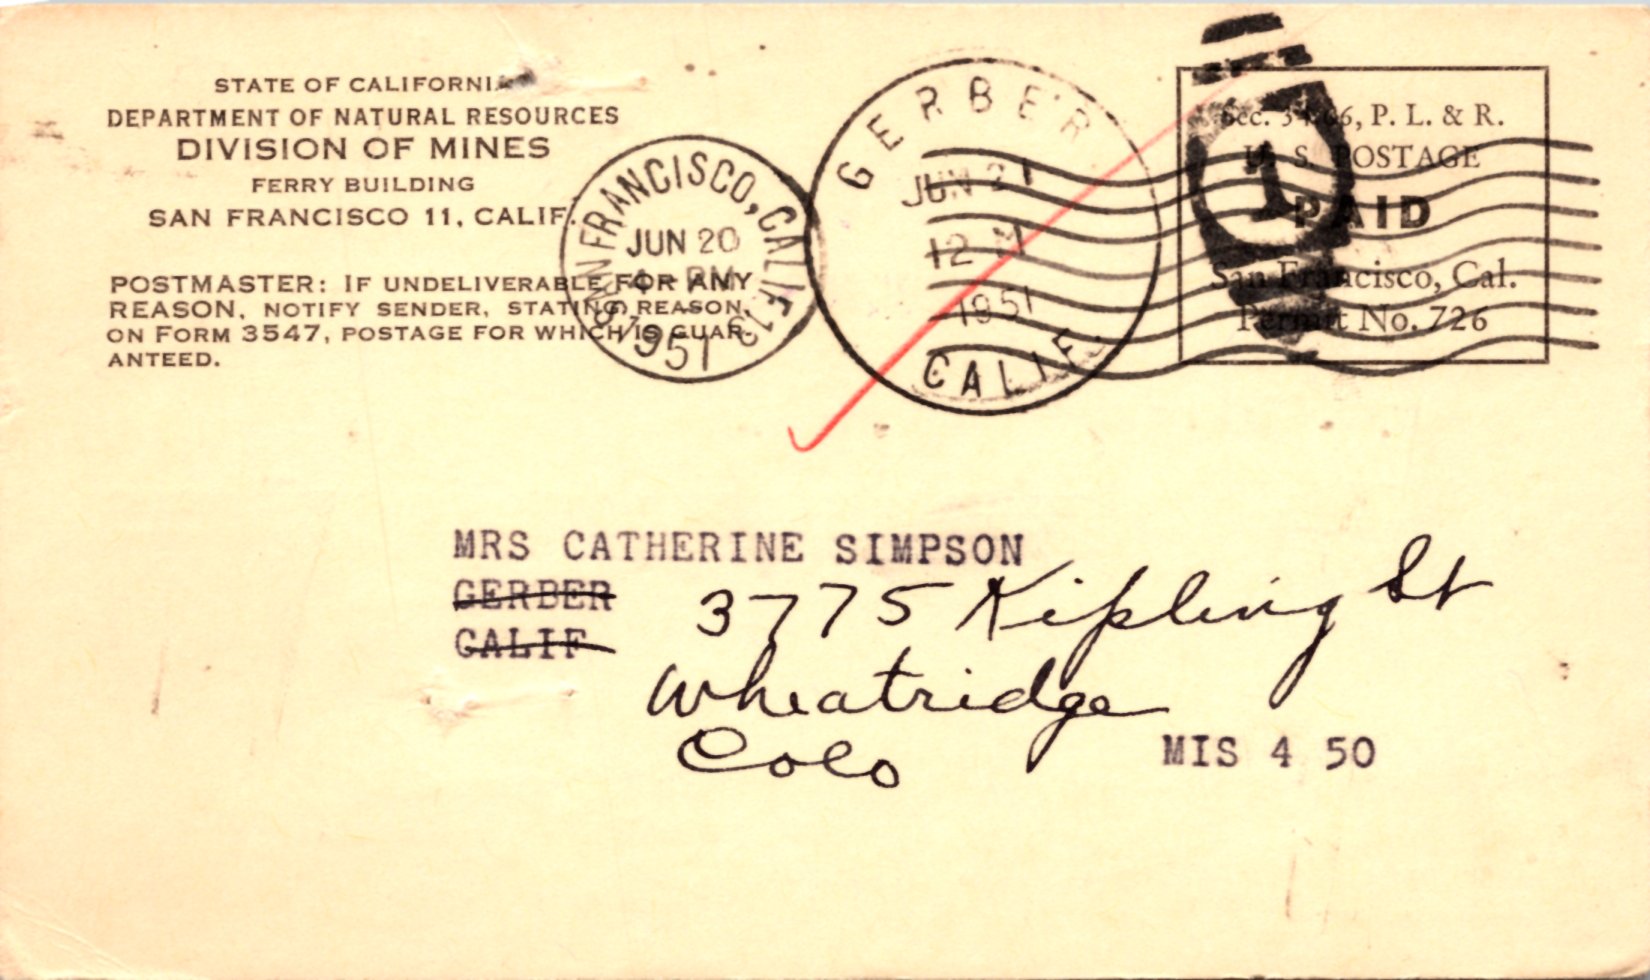 STATE OF CALIFORNIA
DEPARTMENT OF NATURAL RESOURCES
DIVISION OF MINES
FERRY BUILDING
SAN FRANCISCO 11, CALIF.
POSTMASTER: IF UNDELIVERABLE FOR ANY
REASON, NOTIFY SENDER, STATING REASON,
ON FORM 3547, POSTAGE FOR WHICH IS GUAR-
ANTEED.
SAN FRANCISCO, CALIF.
JUN 20
PM
1951
GERBER
JUN 21
12 M
1951
CALIF.
1
Sec. 34.66, P. L. & R.
U. S. POSTAGE
PAID
San Francisco, Cal.
Permit No. 726
MRS CATHERINE SIMPSON
GERBER
CALIF
3775 Kipling St
Wheatridge
Colo
MIS 4 50